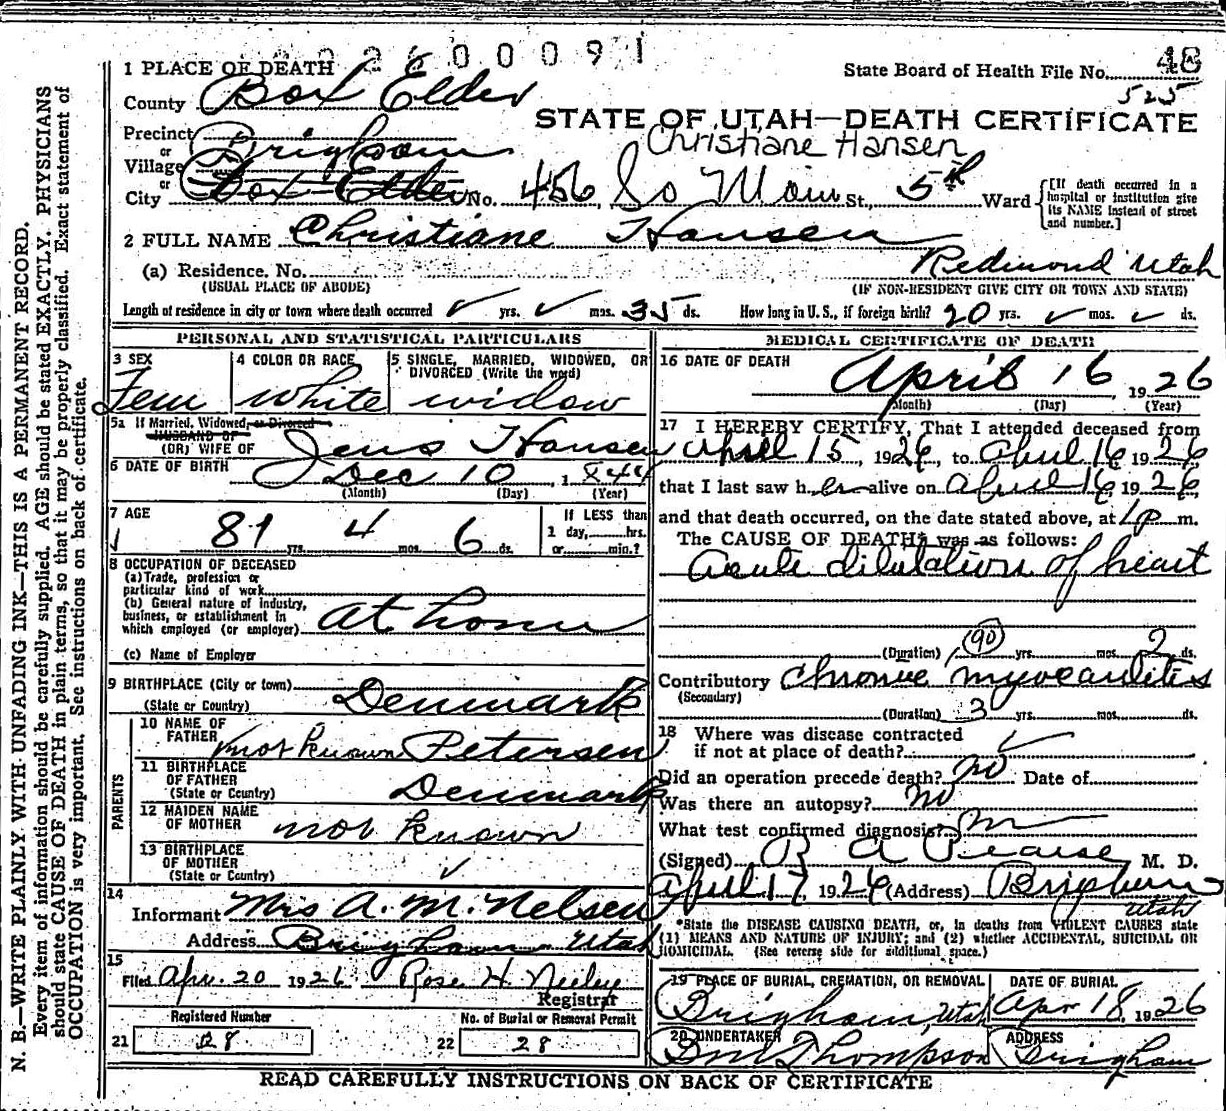 2 6 0 0 0 9 1
1 PLACE OF DEATH
State Board of Health File No. 48
525
County Box Elder
STATE OF UTAH—DEATH CERTIFICATE
Christiane Hansen
Precinct
or
Village Brigham
or
City Box Elder No. 456 So Main St., 5th Ward
[If death occurred in a hospital or institution give its NAME instead of street and number.]
2 FULL NAME Christiane Hansen
(a) Residence. No. Redmond Utah
(USUAL PLACE OF ABODE) (IF NON-RESIDENT GIVE CITY OR TOWN AND STATE)
Length of residence in city or town where death occurred ✓ yrs. ✓ mos. 35 ds. How long in U. S., if foreign birth? 20 yrs. ✓ mos. ✓ ds.
PERSONAL AND STATISTICAL PARTICULARS
3 SEX
Fem
4 COLOR OR RACE
white
5 SINGLE, MARRIED, WIDOWED, OR
DIVORCED (Write the word)
widow
5a If Married, Widowed, or Divorced
HUSBAND OF
(OR) WIFE OF Jens Hansen
6 DATE OF BIRTH Dec 10, 1844
(Month) (Day) (Year)
7 AGE
81 yrs. 4 mos. 6 ds.
If LESS than
1 day, hrs.
or min.?
8 OCCUPATION OF DECEASED
(a) Trade, profession or
particular kind of work
(b) General nature of industry,
business, or establishment in
which employed (or employer) at home
(c) Name of Employer
9 BIRTHPLACE (City or town)
(State or Country) Denmark
PARENTS
10 NAME OF
FATHER not known Petersen
11 BIRTHPLACE
OF FATHER
(State or Country) Denmark
12 MAIDEN NAME
OF MOTHER not known
13 BIRTHPLACE
OF MOTHER
(State or Country) ✓
14
Informant Mrs A. M. Nelsen
Address Brigham Utah
15
Filed Apr. 20 1926 Rose H. Neeley
Registrar
Registered Number
21 28
No. of Burial or Removal Permit
22 28
MEDICAL CERTIFICATE OF DEATH
16 DATE OF DEATH
April 16, 1926
(Month) (Day) (Year)
17 I HEREBY CERTIFY, That I attended deceased from
April 15, 1926, to April 16 1926
that I last saw her alive on April 16, 1926
and that death occurred, on the date stated above, at 1 p m.
The CAUSE OF DEATH* was as follows:
Acute dilutation of heart
90
(Duration) yrs. mos. 2 ds.
Contributory Chronic myocarditis
(Secondary)
(Duration) 3 yrs. mos. ds.
18 Where was disease contracted
if not at place of death? ✓
Did an operation precede death? no Date of
Was there an autopsy? no
What test confirmed diagnosis?
(Signed) R A Pearse M. D.
April 17, 1926 (Address) Brigham
Utah
*State the DISEASE CAUSING DEATH, or, in deaths from VIOLENT CAUSES state
(1) MEANS AND NATURE OF INJURY; and (2) whether ACCIDENTAL, SUICIDAL OR
HOMICIDAL. (See reverse side for additional space.)
19 PLACE OF BURIAL, CREMATION, OR REMOVAL
Brigham, Utah
DATE OF BURIAL
Apr 18, 1926
20 UNDERTAKER
Thompson
ADDRESS
Brigham
READ CAREFULLY INSTRUCTIONS ON BACK OF CERTIFICATE
N. B.—WRITE PLAINLY WITH UNFADING INK—THIS IS A PERMANENT RECORD.
Every item of information should be carefully supplied. AGE should be stated EXACTLY. PHYSICIANS
should state CAUSE OF DEATH in plain terms, so that it may be properly classified. Exact statement of
OCCUPATION is very important. See instructions on back of certificate.